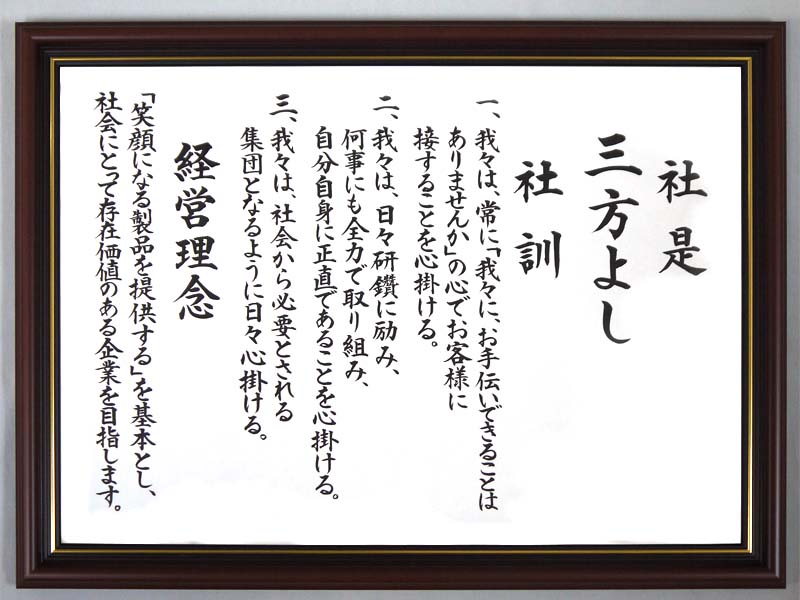 社是
三方よし
社訓
一、我々は、常に「我々に、お手伝いできることは
ありませんか」の心でお客様に
接することを心掛ける。
二、我々は、日々研鑽に励み、
何事にも全力で取り組み、
自分自身に正直であることを心掛ける。
三、我々は、社会から必要とされる
集団となるように日々心掛ける。
経営理念
「笑顔になる製品を提供する」を基本とし、
社会にとって存在価値のある企業を目指します。